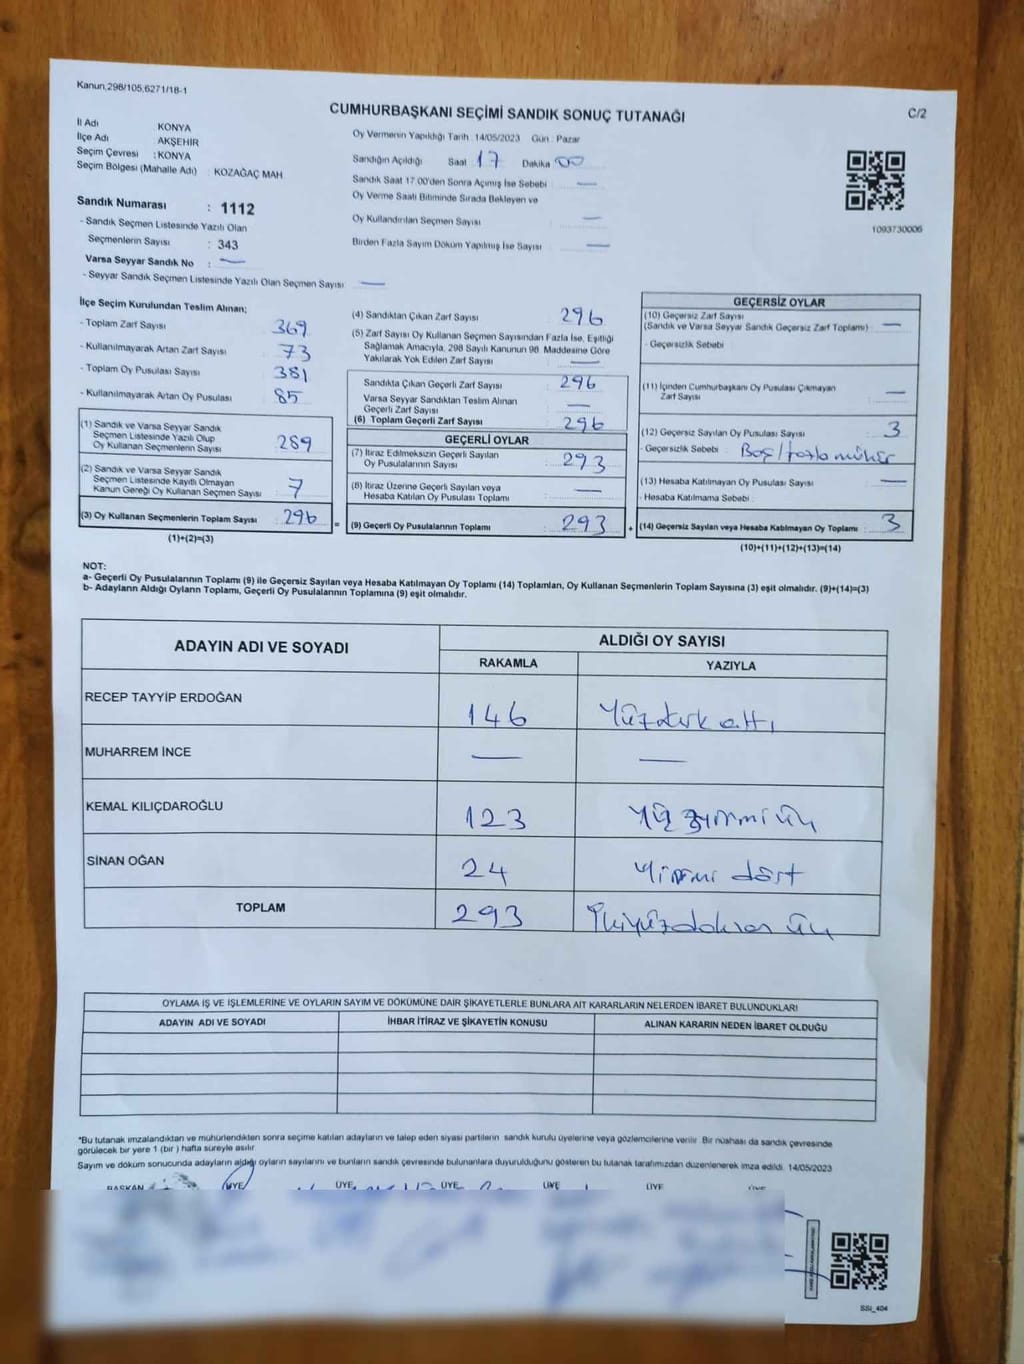 Kanun,298/105,6271/18-1
CUMHURBAŞKANI SEÇİMİ SANDIK SONUÇ TUTANAĞI
C/2
İl Adı KONYA
İlçe Adı AKŞEHİR
Seçim Çevresi : KONYA
Seçim Bölgesi (Mahalle Adı) : KOZAĞAÇ MAH
Oy Vermenin Yapıldığı Tarih 14/05/2023 Gün Pazar
Sandığın Açıldığı Saat 17 Dakika 00
Sandık Saat 17.00'den Sonra Açımış İse Sebebi —
Oy Verme Saati Bitiminde Sırada Bekleyen ve
Oy Kullandırılan Seçmen Sayısı —
Birden Fazla Sayım Döküm Yapılmış İse Sayısı —
1093730006
Sandık Numarası : 1112
- Sandık Seçmen Listesinde Yazılı Olan
Seçmenlerin Sayısı : 343
Varsa Seyyar Sandık No : —
- Seyyar Sandık Seçmen Listesinde Yazılı Olan Seçmen Sayısı —
İlçe Seçim Kurulundan Teslim Alınan;
- Toplam Zarf Sayısı 369
- Kullanılmayarak Artan Zarf Sayısı 73
- Toplam Oy Pusulası Sayısı 381
- Kullanılmayarak Artan Oy Pusulası 85
(1) Sandık ve Varsa Seyyar Sandık
Seçmen Listesinde Yazılı Olup
Oy Kullanan Seçmenlerin Sayısı 289
(2) Sandık ve Varsa Seyyar Sandık
Seçmen Listesinde Kayıtlı Olmayan
Kanun Gereği Oy Kullanan Seçmen Sayısı 7
(3) Oy Kullanan Seçmenlerin Toplam Sayısı 296
(1)+(2)=(3)
(4) Sandıktan Çıkan Zarf Sayısı 296
(5) Zarf Sayısı Oy Kullanan Seçmen Sayısından Fazla İse, Eşitliği
Sağlamak Amacıyla, 298 Sayılı Kanunun 98. Maddesine Göre
Yakılarak Yok Edilen Zarf Sayısı —
Sandıkta Çıkan Geçerli Zarf Sayısı 296
Varsa Seyyar Sandıktan Teslim Alınan
Geçerli Zarf Sayısı —
(6) Toplam Geçerli Zarf Sayısı 296
GEÇERLİ OYLAR
(7) İtiraz Edilmeksizin Geçerli Sayılan
Oy Pusulalarının Sayısı : 293
(8) İtiraz Üzerine Geçerli Sayılan veya
Hesaba Katılan Oy Pusulası Toplamı —
= (9) Geçerli Oy Pusulalarının Toplamı : 293
GEÇERSİZ OYLAR
(10) Geçersiz Zarf Sayısı
(Sandık ve Varsa Seyyar Sandık Geçersiz Zarf Toplamı) —
- Geçersizlik Sebebi
(11) İçinden Cumhurbaşkanı Oy Pusulası Çıkmayan
Zarf Sayısı —
(12) Geçersiz Sayılan Oy Pusulası Sayısı 3
- Geçersizlik Sebebi : Boş/fazla mühür
(13) Hesaba Katılmayan Oy Pusulası Sayısı —
- Hesaba Katılmama Sebebi :
+ (14) Geçersiz Sayılan veya Hesaba Katılmayan Oy Toplamı : 3
(10)+(11)+(12)+(13)=(14)
NOT:
a- Geçerli Oy Pusulalarının Toplamı (9) ile Geçersiz Sayılan veya Hesaba Katılmayan Oy Toplamı (14) Toplamları, Oy Kullanan Seçmenlerin Toplam Sayısına (3) eşit olmalıdır. (9)+(14)=(3)
b- Adayların Aldığı Oyların Toplamı, Geçerli Oy Pusulalarının Toplamına (9) eşit olmalıdır.
ADAYIN ADI VE SOYADI
ALDIĞI OY SAYISI
RAKAMLA YAZIYLA
RECEP TAYYİP ERDOĞAN 146 Yüzkırk altı
MUHARREM İNCE — —
KEMAL KILIÇDAROĞLU 123 Yüz yirmi üç
SİNAN OĞAN 24 Yirmi dört
TOPLAM 293 İkiyüzdoksan üç
OYLAMA İŞ VE İŞLEMLERİNE VE OYLARIN SAYIM VE DÖKÜMÜNE DAİR ŞİKAYETLERLE BUNLARA AİT KARARLARIN NELERDEN İBARET BULUNDUKLARI
ADAYIN ADI VE SOYADI İHBAR İTİRAZ VE ŞİKAYETİN KONUSU ALINAN KARARIN NEDEN İBARET OLDUĞU
*Bu tutanak imzalandıktan ve mühürlendikten sonra seçime katılan adayların ve talep eden siyasi partilerin sandık kurulu üyelerine veya gözlemcilerine verilir. Bir nüshası da sandık çevresinde
görülecek bir yere 1 (bir) hafta süreyle asılır.
Sayım ve döküm sonucunda adayların aldığı oyların sayılarını ve bunların sandık çevresinde bulunanlara duyurulduğunu gösteren bu tutanak tarafımızdan düzenlenerek imza edildi. 14/05/2023
BAŞKAN ÜYE ÜYE ÜYE ÜYE ÜYE ÜYE
SSI_404